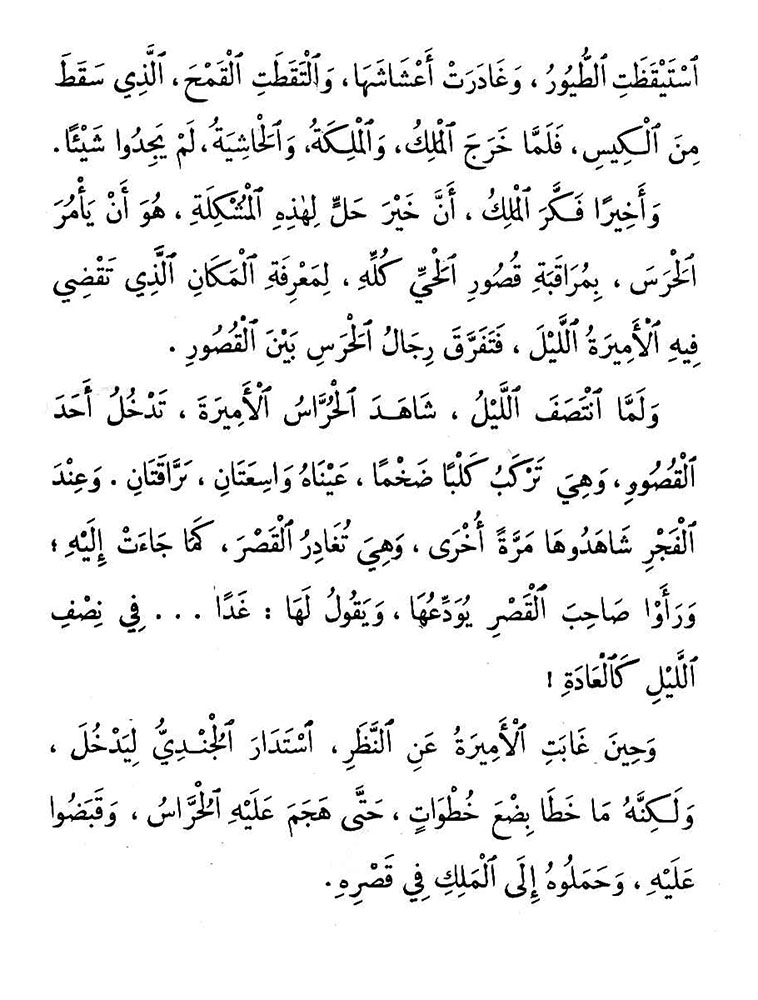 ٱسْتَيْقَظَتِ ٱلطُّيُورُ ، وَغَادَرَتْ أَعْشَاشَهَا ، وَٱلْتَقَطَتِ ٱلْقَمْحَ ، ٱلَّذِي سَقَطَ
مِنَ ٱلْكِيسِ ، فَلَمَّا خَرَجَ ٱلْمَلِكُ ، وَٱلْمَلِكَةُ ، وَٱلْحَاشِيَةُ ، لَمْ يَجِدُوا شَيْئًا .
وَأَخِيرًا فَكَّرَ ٱلْمَلِكُ ، أَنَّ خَيْرَ حَلٍّ لِهٰذِهِ ٱلْمُشْكِلَةِ ، هُوَ أَنْ يَأْمُرَ
ٱلْحَرَسَ ، بِمُرَاقَبَةِ قُصُورِ ٱلْحَيِّ كُلِّهِ ، لِمَعْرِفَةِ ٱلْمَكَانِ ٱلَّذِي تَقْضِي
فِيهِ ٱلْأَمِيرَةُ ٱللَّيْلَ ، فَتَفَرَّقَ رِجَالُ ٱلْحَرَسِ بَيْنَ ٱلْقُصُورِ .
وَلَمَّا ٱنْتَصَفَ ٱللَّيْلُ ، شَاهَدَ ٱلْحُرَّاسُ ٱلْأَمِيرَةَ ، تَدْخُلُ أَحَدَ
ٱلْقُصُورِ ، وَهِيَ تَرْكَبُ كَلْبًا ضَخْمًا ، عَيْنَاهُ وَاسِعَتَانِ ، بَرَّاقَتَانِ . وَعِنْدَ
ٱلْفَجْرِ شَاهَدُوهَا مَرَّةً أُخْرَى ، وَهِيَ تُغَادِرُ ٱلْقَصْرَ ، كَمَا جَاءَتْ إِلَيْهِ ؛
وَرَأَوْا صَاحِبَ ٱلْقَصْرِ يُوَدِّعُهَا ، وَيَقُولُ لَهَا : غَدًا . . . فِي نِصْفِ
ٱللَّيْلِ كَٱلْعَادَةِ !
وَحِينَ غَابَتِ ٱلْأَمِيرَةُ عَنِ ٱلنَّظَرِ ، ٱسْتَدَارَ ٱلْجُنْدِيُّ لِيَدْخُلَ ،
وَلَكِنَّهُ مَا خَطَا بِضْعَ خُطْوَاتٍ ، حَتَّى هَجَمَ عَلَيْهِ ٱلْحُرَّاسُ ، وَقَبَضُوا
عَلَيْهِ ، وَحَمَلُوهُ إِلَى ٱلْمَلِكِ فِي قَصْرِهِ .